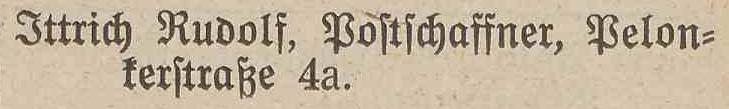 Ittrich Rudolf, Poſtſchaffner, Pelon⸗
kerſtraße 4a.